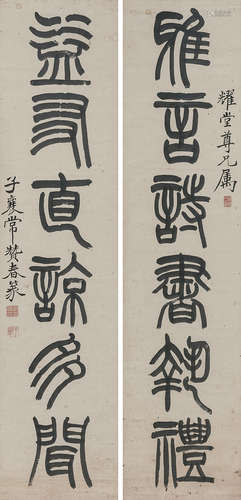 耀堂尊兄属
雅言詩書執禮
益友直諒多聞
子襄常贊春篆